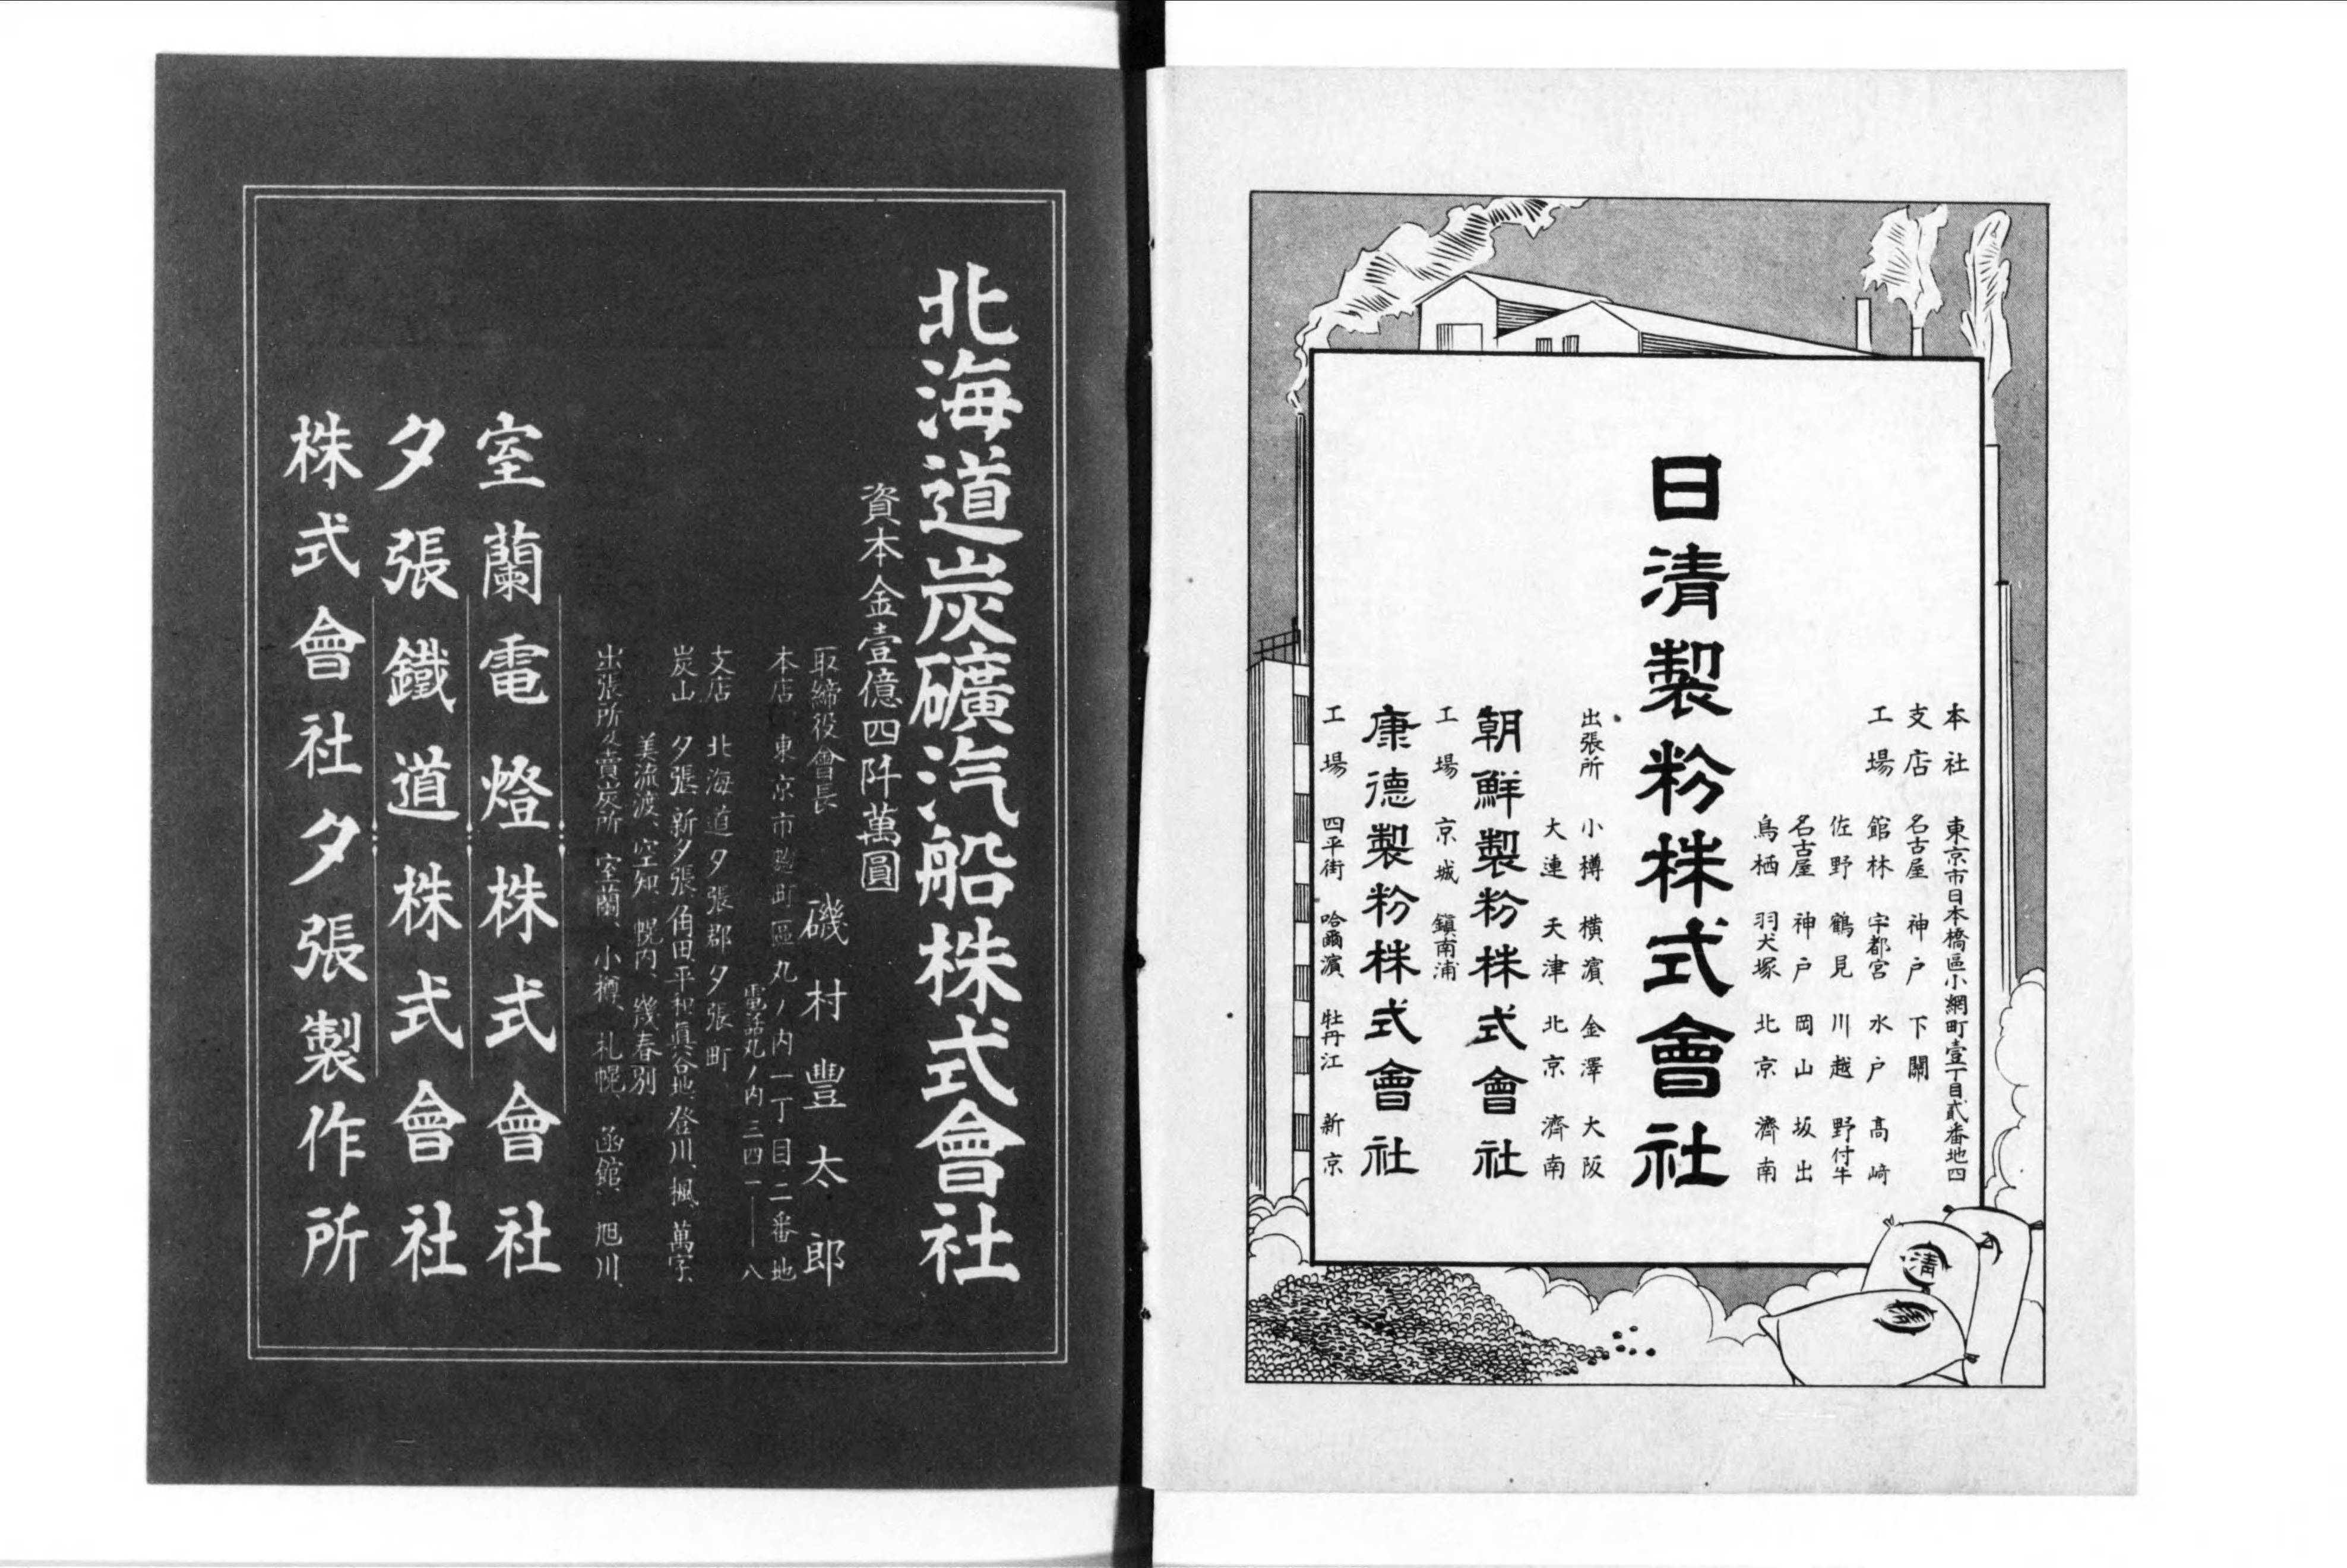 本社 東京市日本橋區小網町壹丁目貳番地四
支店 名古屋 神戸 下關
工場 館林 宇都宮 水戸 高崎
佐野 鶴見 川越 野付牛
名古屋 神戸 岡山 坂出
鳥栖 羽犬塚 北京 濟南
日清製粉株式會社
出張所 小樽 横濱 金澤 大阪
大連 天津 北京 濟南
朝鮮製粉株式會社
工場 京城 鎭南浦
康德製粉株式會社
工場 四平街 哈爾濱 牡丹江 新京
清
北海道炭礦汽船株式會社
資本金壹億四阡萬圓
取締役會長 磯村豐太郎
本店 東京市麴町區丸ノ内一丁目二番地
電話丸ノ内三四一——八
支店 北海道夕張郡夕張町
炭山 夕張、新夕張、角田、平和、眞谷地、登川、楓、萬字、
美流渡、空知、幌内、幾春別
出張所及賣炭所 室蘭、小樽、札幌、函館、旭川、
室蘭電燈株式會社
夕張鐵道株式會社
株式會社夕張製作所